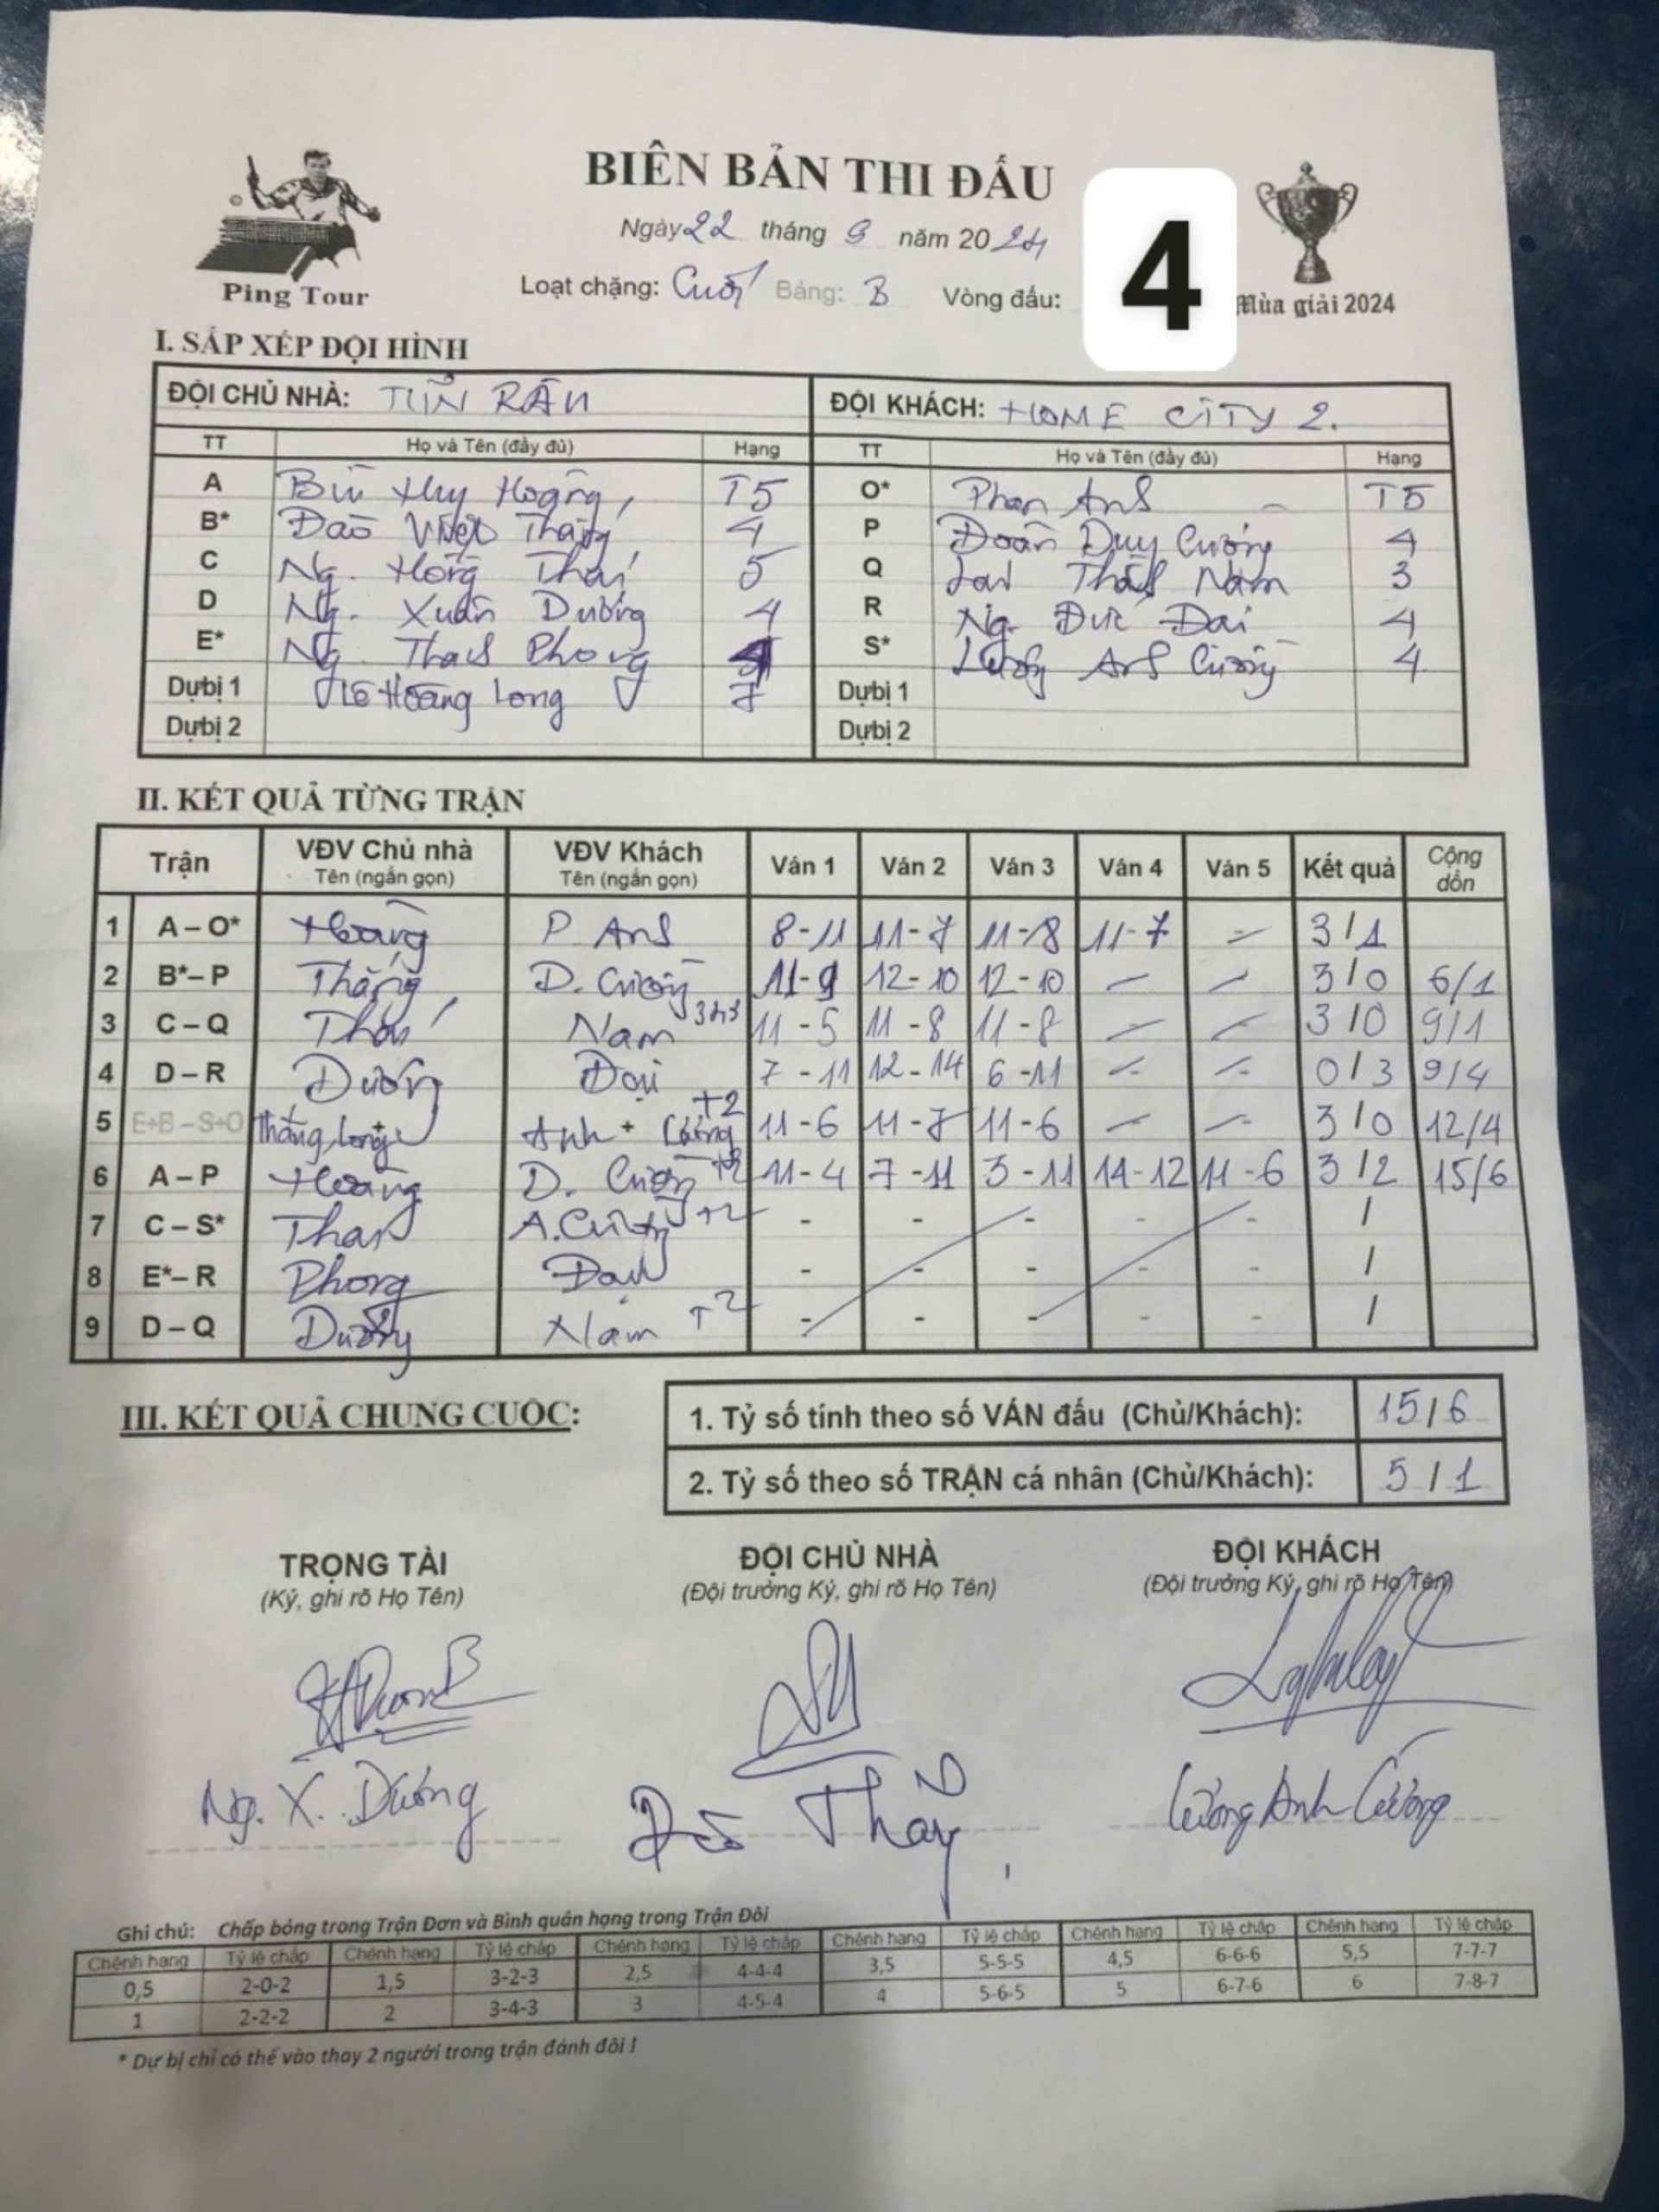 BIÊN BẢN THI ĐẤU
Ngày 22 tháng 9 năm 2024
Ping Tour
Loạt chặng: Cuối Bảng: B Vòng đấu: 4
Mùa giải 2024
I. SẮP XẾP ĐỘI HÌNH
ĐỘI CHỦ NHÀ: TUẤN RÂU ĐỘI KHÁCH: HOME CITY 2.
TT Họ và Tên (đầy đủ) Hạng TT Họ và Tên (đầy đủ) Hạng
A Bùi Huy Hoàng T5 O* Phan Anh T5
B* Đào Việt Thắng 4 P Đoàn Duy Cường 4
C Ng. Hồng Thái 5 Q Thành Nam 3
D Ng. Xuân Dương 4 R Ng. Đức Đại 4
E* Ng. Thanh Phong S* Lương Anh Cường 4
Dự bị 1 Lê Hoàng Long 7 Dự bị 1
Dự bị 2 Dự bị 2
II. KẾT QUẢ TỪNG TRẬN
Trận VĐV Chủ nhà Tên (ngắn gọn) VĐV Khách Tên (ngắn gọn) Ván 1 Ván 2 Ván 3 Ván 4 Ván 5 Kết quả Cộng dồn
1 A – O* Hoàng P. Anh 8-11 11-7 11-8 11-7 - 3/1
2 B*– P Thắng D. Cường 11-9 12-10 12-10 - - 3/0 6/1
3 C – Q Thái Nam 343 11-5 11-8 11-8 - - 3/0 9/1
4 D – R Dương Đại 7-11 12-14 6-11 - - 0/3 9/4
5 E+B – S+O Thắng + Long Anh + Cường +2 11-6 11-7 11-6 - - 3/0 12/4
6 A – P Hoàng D. Cường +2 11-4 7-11 3-11 14-12 11-6 3/2 15/6
7 C – S* Thái A. Cường +2 - - - - - /
8 E*– R Phong Đại - - - - - /
9 D – Q Dương Nam +2 - - - - - /
III. KẾT QUẢ CHUNG CUỘC:
1. Tỷ số tính theo số VÁN đấu (Chủ/Khách): 15/6
2. Tỷ số theo số TRẬN cá nhân (Chủ/Khách): 5/1
TRỌNG TÀI ĐỘI CHỦ NHÀ ĐỘI KHÁCH
(Ký, ghi rõ Họ Tên) (Đội trưởng Ký, ghi rõ Họ Tên) (Đội trưởng Ký, ghi rõ Họ Tên)
Ng. X. Dương Đào Thắng Lương Anh Cường
Ghi chú: Chấp bóng trong Trận Đơn và Bình quân hạng trong Trận Đôi
Chênh hạng Tỷ lệ chấp Chênh hạng Tỷ lệ chấp Chênh hạng Tỷ lệ chấp Chênh hạng Tỷ lệ chấp Chênh hạng Tỷ lệ chấp Chênh hạng Tỷ lệ chấp
0,5 2-0-2 1,5 3-2-3 2,5 4-4-4 3,5 5-5-5 4,5 6-6-6 5,5 7-7-7
1 2-2-2 2 3-4-3 3 4-5-4 4 5-6-5 5 6-7-6 6 7-8-7
* Dự bị chỉ có thể vào thay 2 người trong trận đánh đôi !